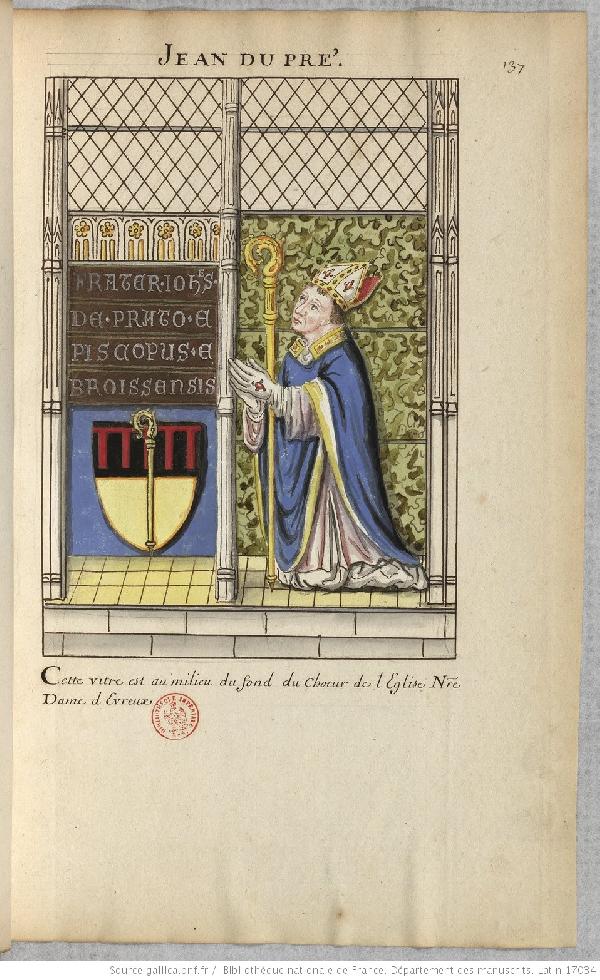 JEAN DU PRE'.
137
FRATER·IOHES·
DE·PRATO·E
PISCOPUS·E
BROISSENSIS
Cette vitre est au milieu du fond du Choeur de l'Eglise Nr̃e
Dame d'Evreux
Source gallica.bnf.fr / Bibliothèque nationale de France. Département des manuscrits. Latin 17034